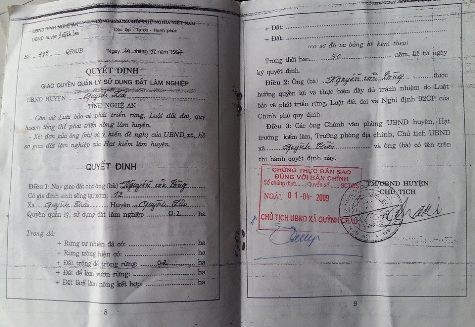 UBND TỈNH NGHỆ AN CỘNG HÒA XÃ HỘI CHỦ NGHĨA VIỆT NAM
UBND Huyện Độc lập - Tự do - Hạnh phúc
Số QĐUB Ngày tháng năm
QUYẾT ĐỊNH
GIAO QUYỀN QUẢN LÝ SỬ DỤNG ĐẤT LÂM NGHIỆP
UBND HUYỆN Quỳnh Lưu
TỈNH NGHỆ AN
Căn cứ Luật bảo vệ phát triển rừng, Luật đất đai, quy
hoạch tổng thể phát triển nông lâm huyện.
Xét đơn của ông (bà) và ý kiến đề nghị của UBND xã, hồ
sơ giao đất lâm nghiệp của Hạt kiểm lâm huyện.
QUYẾT ĐỊNH
Điều 1: Nay giao đất cho ông (bà) Nguyễn văn Long
Có gia đình sinh sống tại xóm 12
Xã Quỳnh Châu Huyện Quỳnh Lưu
Quyền quản lý, sử dụng đất lâm nghiệp 0.2 ha
Trong đó:
+ Rừng tự nhiên đã có: ha
+ Rừng trồng hiện có: ha
+ Đất trống để trồng rừng: 0.2 ha
+ Đất để làm vườn rừng: ha
+ Đất làm nông kết hợp: ha
8
+ Đất:
+ Đất:
(có sơ đồ và bảng kê kèm theo)
Trong thời hạn 50 năm. Kể từ ngày
ký quyết định.
Điều 2: Ông (bà) Nguyễn văn Long được
hưởng quyền lợi và thực hiện đầy đủ trách nhiệm do Luật
bảo vệ và phát triển rừng, Luật đất đai và Nghị định 02CP của
Chính phủ quy định.
Điều 3: Các ông Chánh văn phòng UBND huyện, Hạt
trưởng kiểm lâm, Trưởng phòng địa chính, Chủ tịch UBND
xã Quỳnh Châu và ông (bà) có tên trên
thi hành quyết định này.
CHỨNG THỰC BẢN SAO
ĐÚNG VỚI BẢN CHÍNH
Số chứng thực Quyển số SCT/BS
NGÀY 01-04-2009
CHỦ TỊCH UBND XÃ QUỲNH CHÂU
TM/UBND HUYỆN
CHỦ TỊCH
9